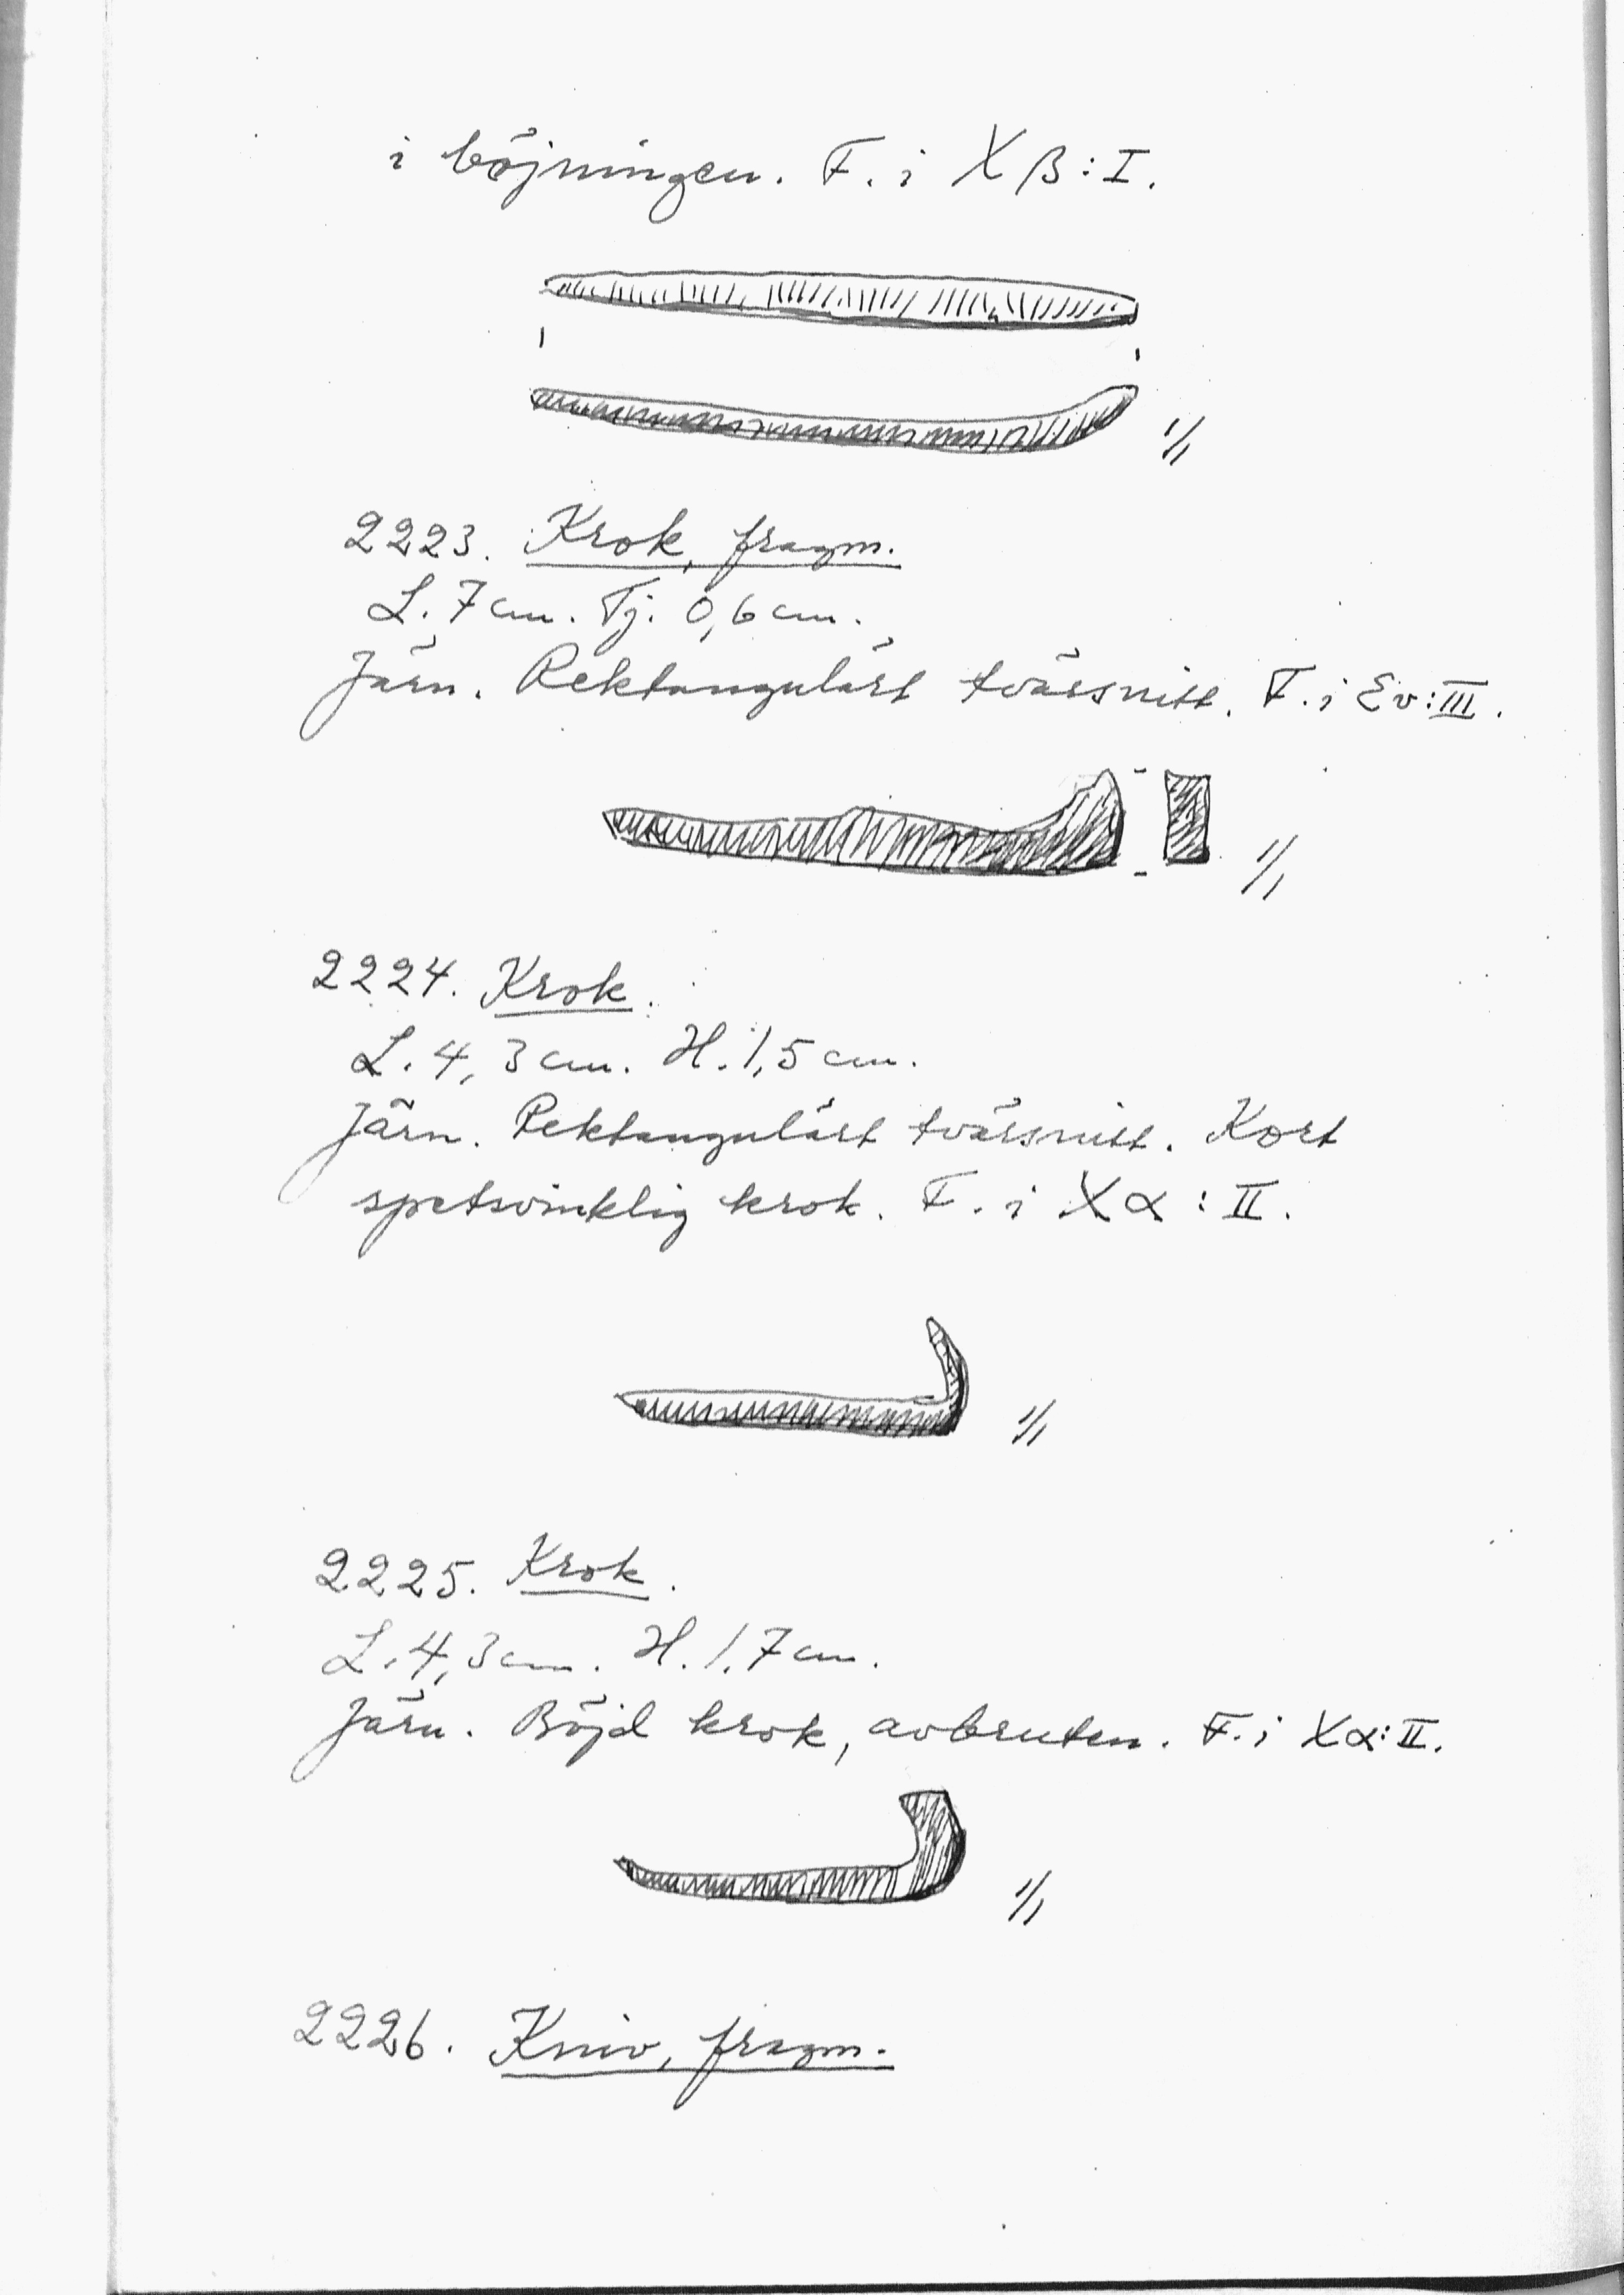 i böjningen. F. i Xβ:I.
1/1
2223. Krok, fragm.
L. 7 cm. Tj. 0,6 cm.
Järn. Rektangulärt tvärsnitt. F. i Ev:III.
1/1
2224. Krok.
L. 4,3 cm. H. 1,5 cm.
Järn. Rektangulärt tvärsnitt. Kort
spetsvinklig krok. F. i Xα:II.
1/1
2225. Krok.
L. 4,3 cm. H. 1,7 cm.
Järn. Böjd krok, avbruten. F. i Xα:II.
1/1
2226. Kniv, fragm.